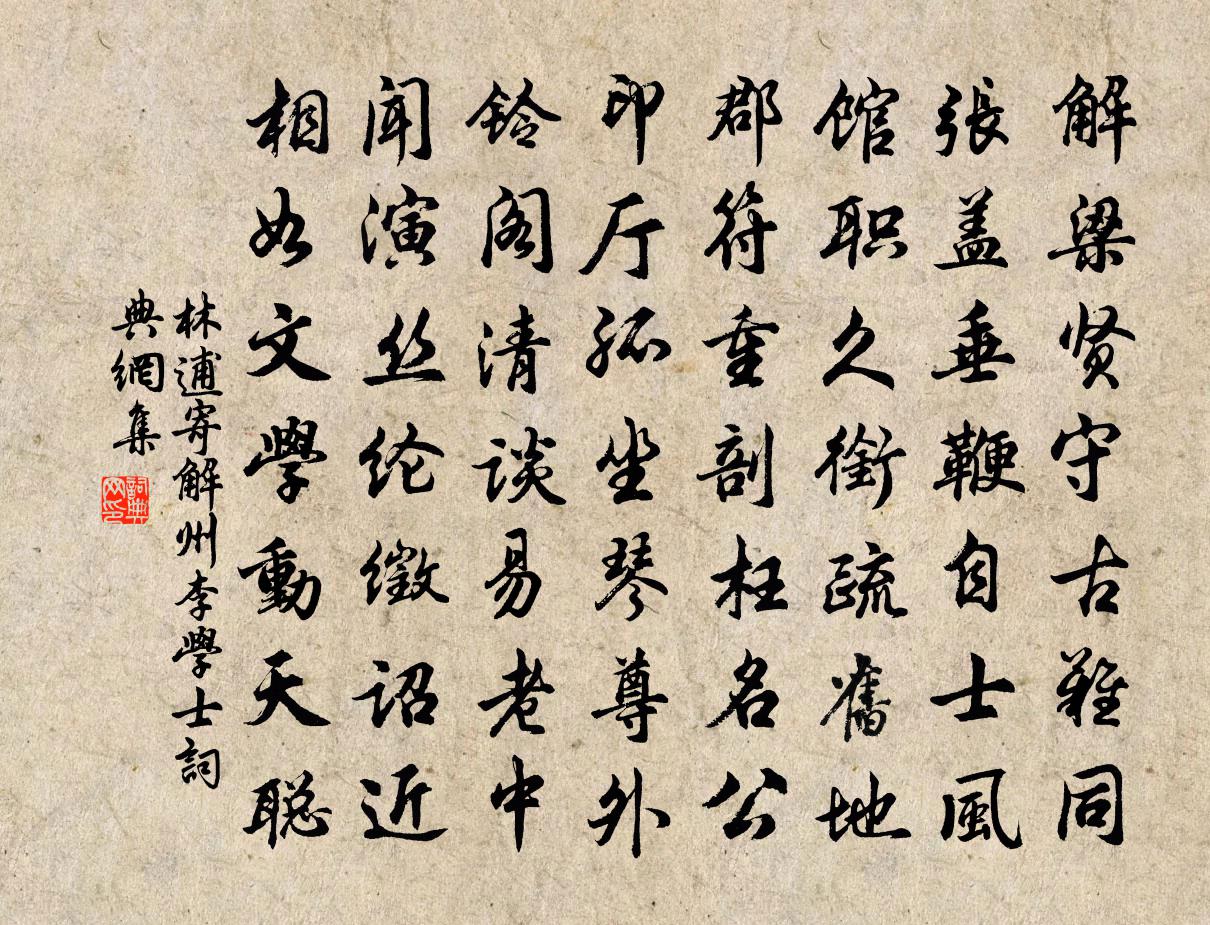 解梁贤守古難同
張盖垂鞭自士風
馆职久銜疏舊地
郡符重剖枉名公
印厅孤坐琴尊外
铃阁清谈易老中
闻演丝纶徵诏近
相如文學動天聪
林逋寄解州李學士詞
典網集
詞典网印